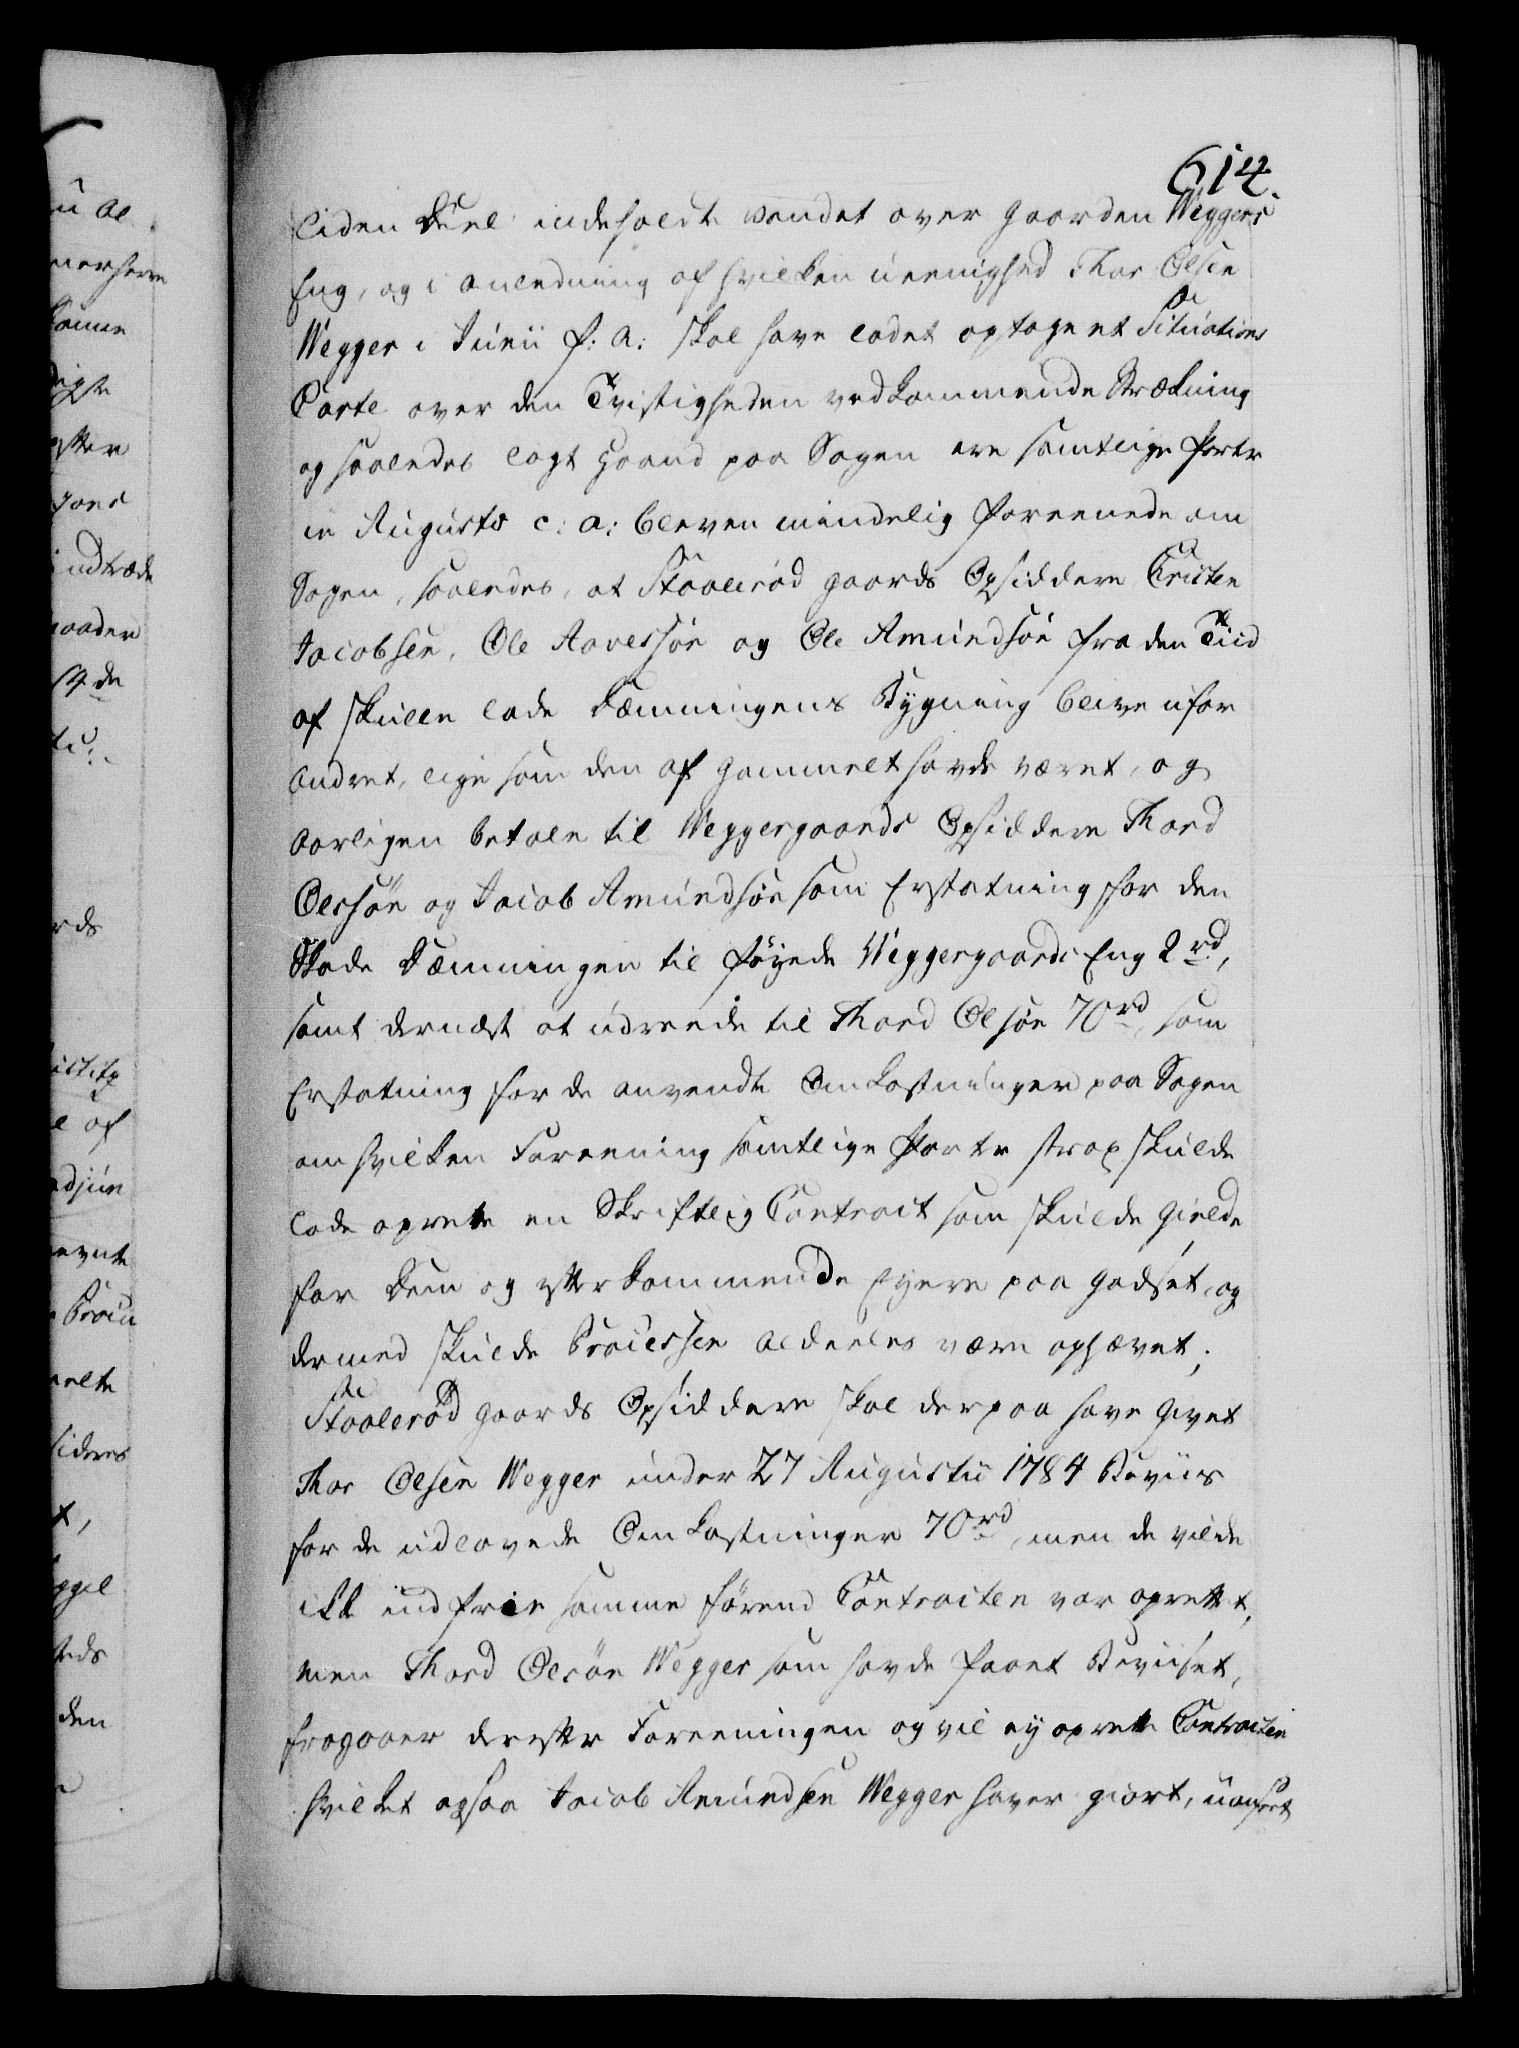 614.
liden Deel indeholdt Vandet over Gaarden Weggers
Eng, og i Anledning af hvilken Ueenighed Thor Olsen
Wegger i Junii f: a: skal have ladet optage et Situations
Carte over den Tvistigheden vedkommende Strækning
og saaledes lagt Haand paa Sagen ere samtlige Parter
in Augusto c: a: bleven mindelig foreenede om
Sagen, saaledes, at Staalerød gaards Opsiddere Cristen
Jacobsen, Ole Aavesøn og Ole Amundsøn fra den Tiid
af skulle lade Dæmningens Bygning blive ufor
andret, lige som den af gammelt havde været, og
aarligen betale til Weggergaards Opsiddere Thord
Olessøn og Jacob Amundsøn som Erstatning for den
Skade Dæmningen til føyede Weggergaards Eng 2 rd,
samt dernæst at udreede til Thord Olsøn 70 rd, som
Erstatning for de anvendte Omkostninger paa Sagen
om hvilken Foreening samtlige Parter strax skulde
lade oprette en Skriftlig Contract som skulde gielde
for dem og efterkommende Eyere paa Godset, og
dermed skulde Processen aldeeles være ophævet;
Staalerød gaards Opsiddere skal derpaa have givet
Thor Olsen Wegger under 27 Augustii 1784 Beviis
for de udlovede Omkostninger 70 rd, men de vilde
ikke indfrie samme førend Contracten var oprettet,
men Thord Olesøn Wegger som havde faaet Beviiset,
fragaaer derefter Foreeningen og vil ey oprette Contracten
hvilket ogsaa Jacob Amundsen Wegger haver giort, uanseet